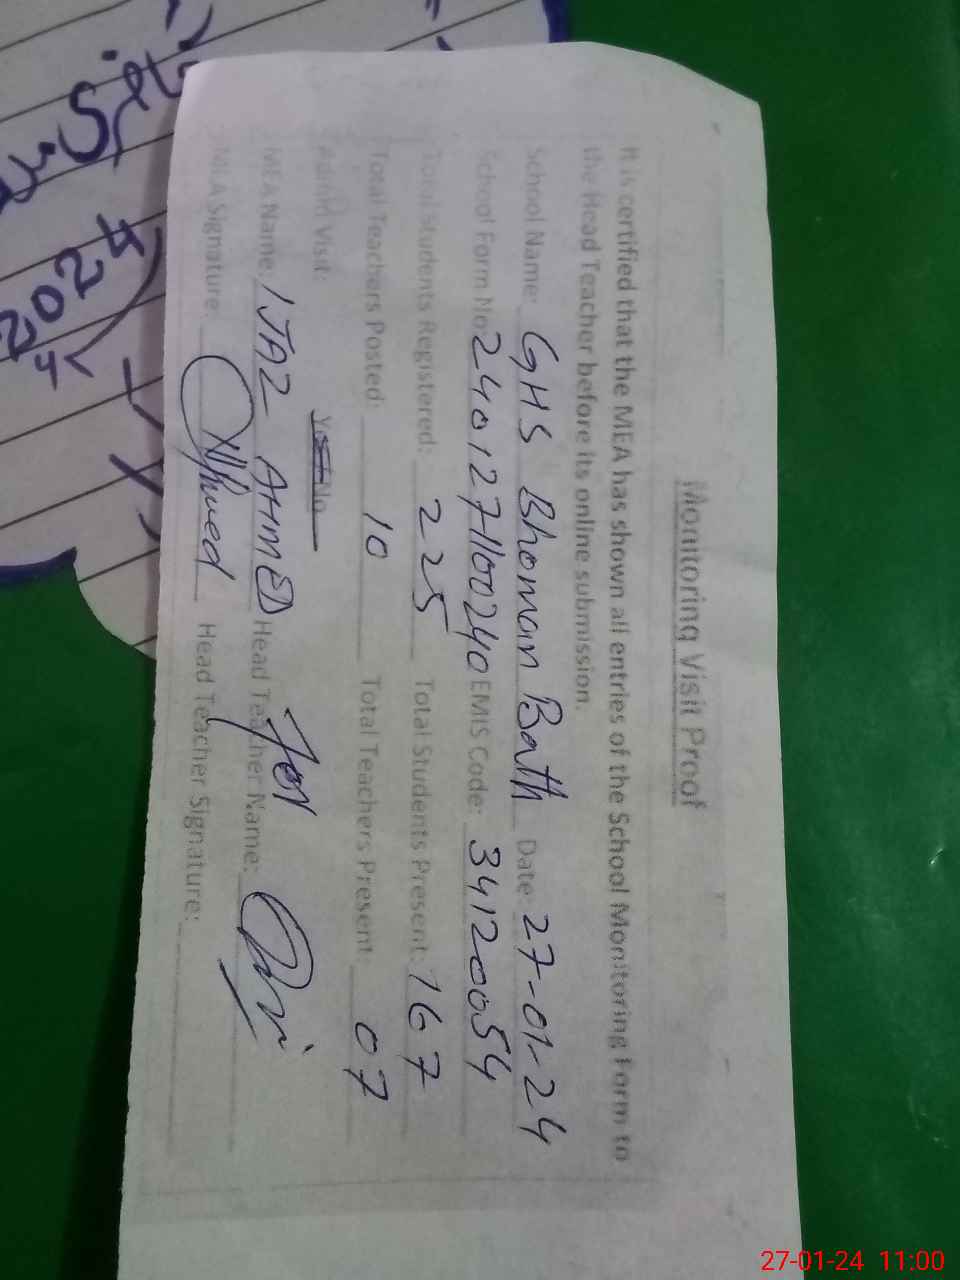 Monitoring Visit Proof
It is certified that the MEA has shown all entries of the School Monitoring Form to
the Head Teacher before its online submission.
School Name: GHS Bhoman Bath Date: 27-01-24
School Form No: 2401271100240 EMIS Code: 34120054
Total Students Registered: 225 Total Students Present: 167
Total Teachers Posted: 10 Total Teachers Present: 07
Admin Visit: Yes No
MEA Name: IJAZ AHMED Head Teacher Name:
MEA Signature: Ahmed Head Teacher Signature:
2024
27-01-24 11:00